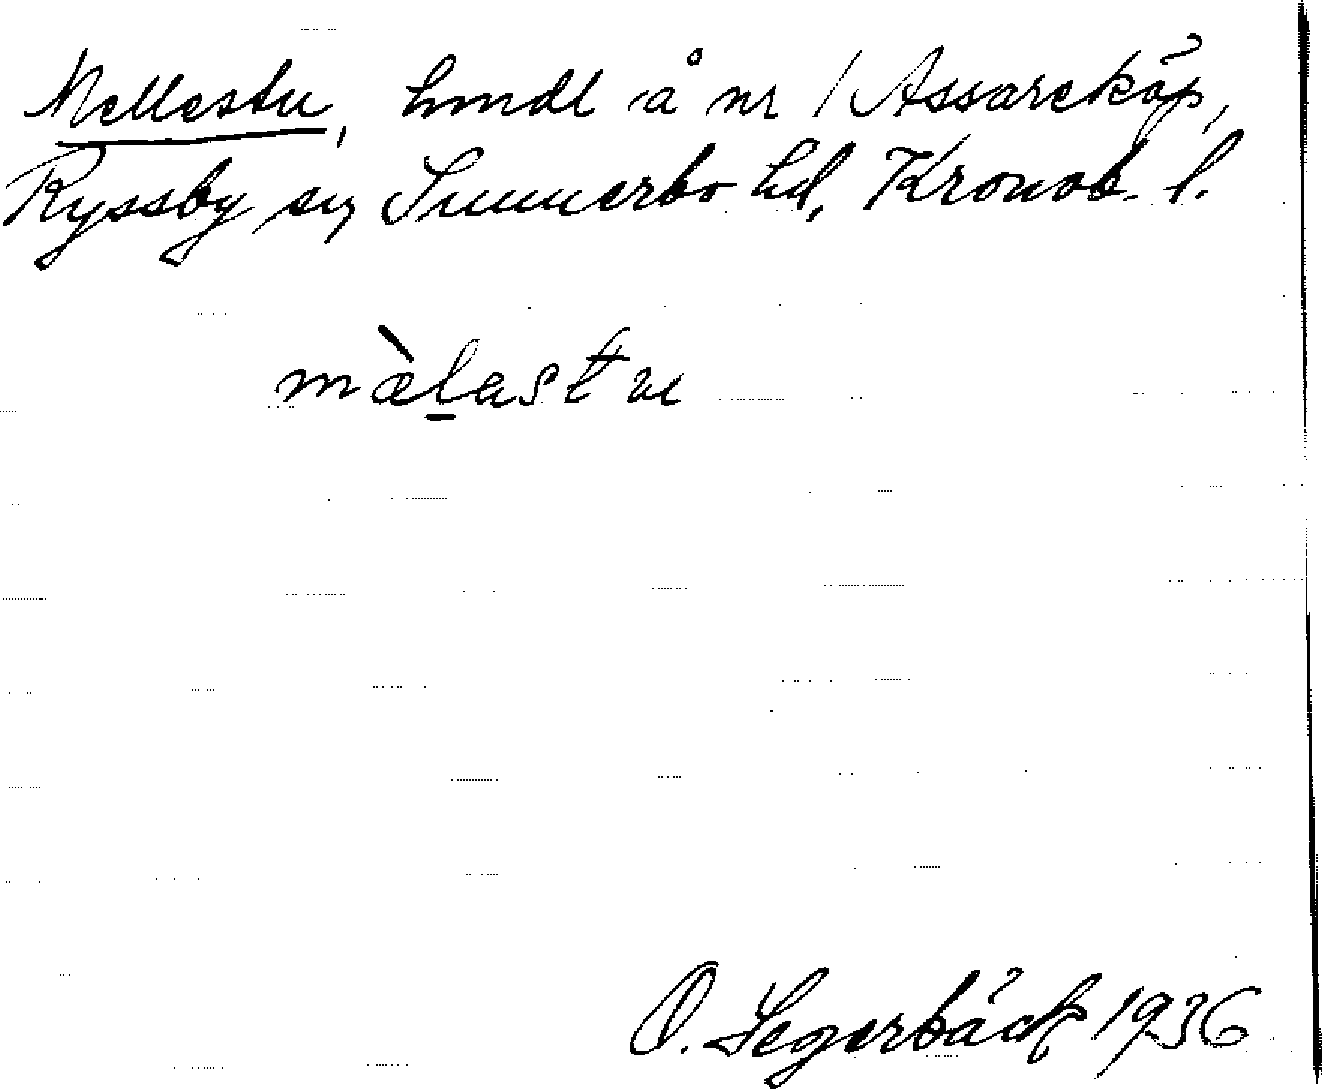 Mellestu, hmdl å nr 1 Assareköp,
Ryssby sn, Sunnerbo hd, Kronob. l.
mæ̀lastu
O. Segerbäck 1936